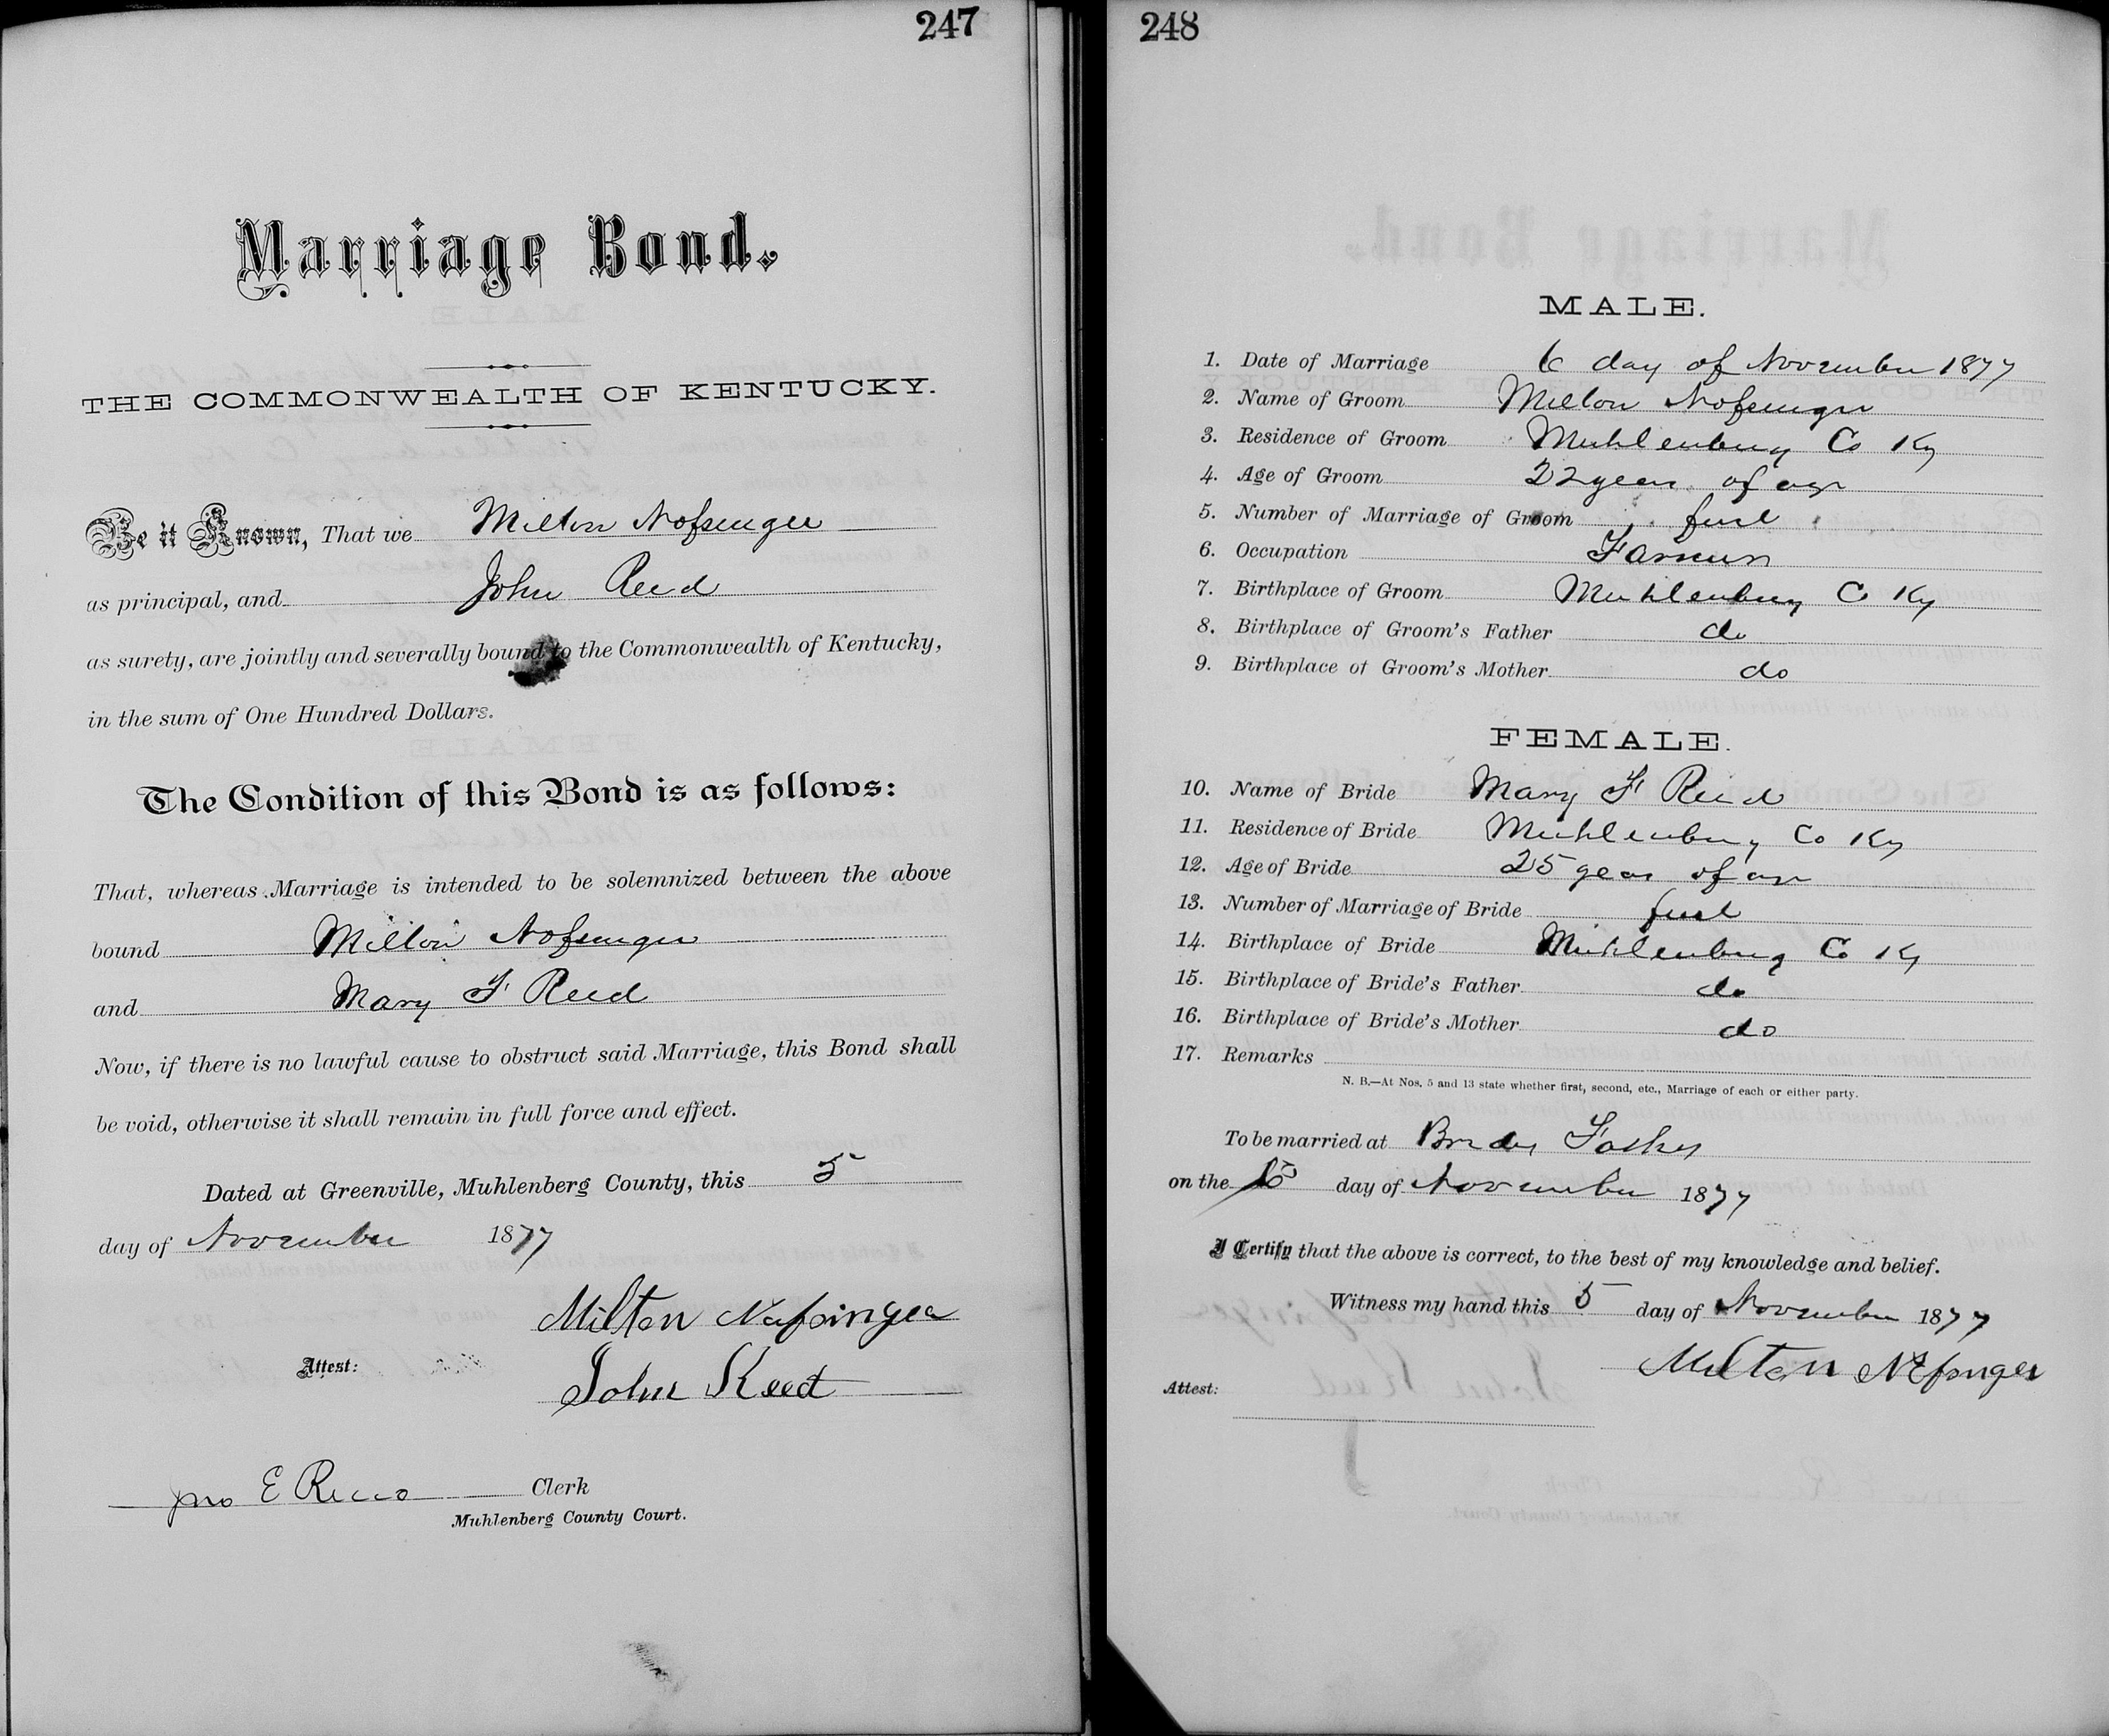 247
Marriage Bond.
THE COMMONWEALTH OF KENTUCKY.
Be it Known, That we Milton Nofsinger
as principal, and John Reed
as surety, are jointly and severally bound to the Commonwealth of Kentucky,
in the sum of One Hundred Dollars.
The Condition of this Bond is as follows:
That, whereas Marriage is intended to be solemnized between the above
bound Milton Nofsinger
and Mary F Reed
Now, if there is no lawful cause to obstruct said Marriage, this Bond shall
be void, otherwise it shall remain in full force and effect.
Dated at Greenville, Muhlenberg County, this 5
day of November 1877
Milton Nofsinger
Attest:
John Reed
Jno E Reno Clerk
Muhlenberg County Court.
248
MALE.
1. Date of Marriage 6 day of November 1877
2. Name of Groom Milton Nofsinger
3. Residence of Groom Muhlenburg Co Ky
4. Age of Groom 22 years of age
5. Number of Marriage of Groom first
6. Occupation Farmer
7. Birthplace of Groom Muhlenburg Co Ky
8. Birthplace of Groom's Father do
9. Birthplace of Groom's Mother do
FEMALE.
10. Name of Bride Mary F Reed
11. Residence of Bride Muhlenburg Co Ky
12. Age of Bride 25 years of age
13. Number of Marriage of Bride first
14. Birthplace of Bride Muhlenburg Co Ky
15. Birthplace of Bride's Father do
16. Birthplace of Bride's Mother do
17. Remarks
N. B.—At Nos. 5 and 13 state whether first, second, etc., Marriage of each or either party.
To be married at Brides Fathers
on the 6 day of November 1877
I Certify that the above is correct, to the best of my knowledge and belief.
Witness my hand this 5 day of November 1877
Milton Nofsinger
Attest: